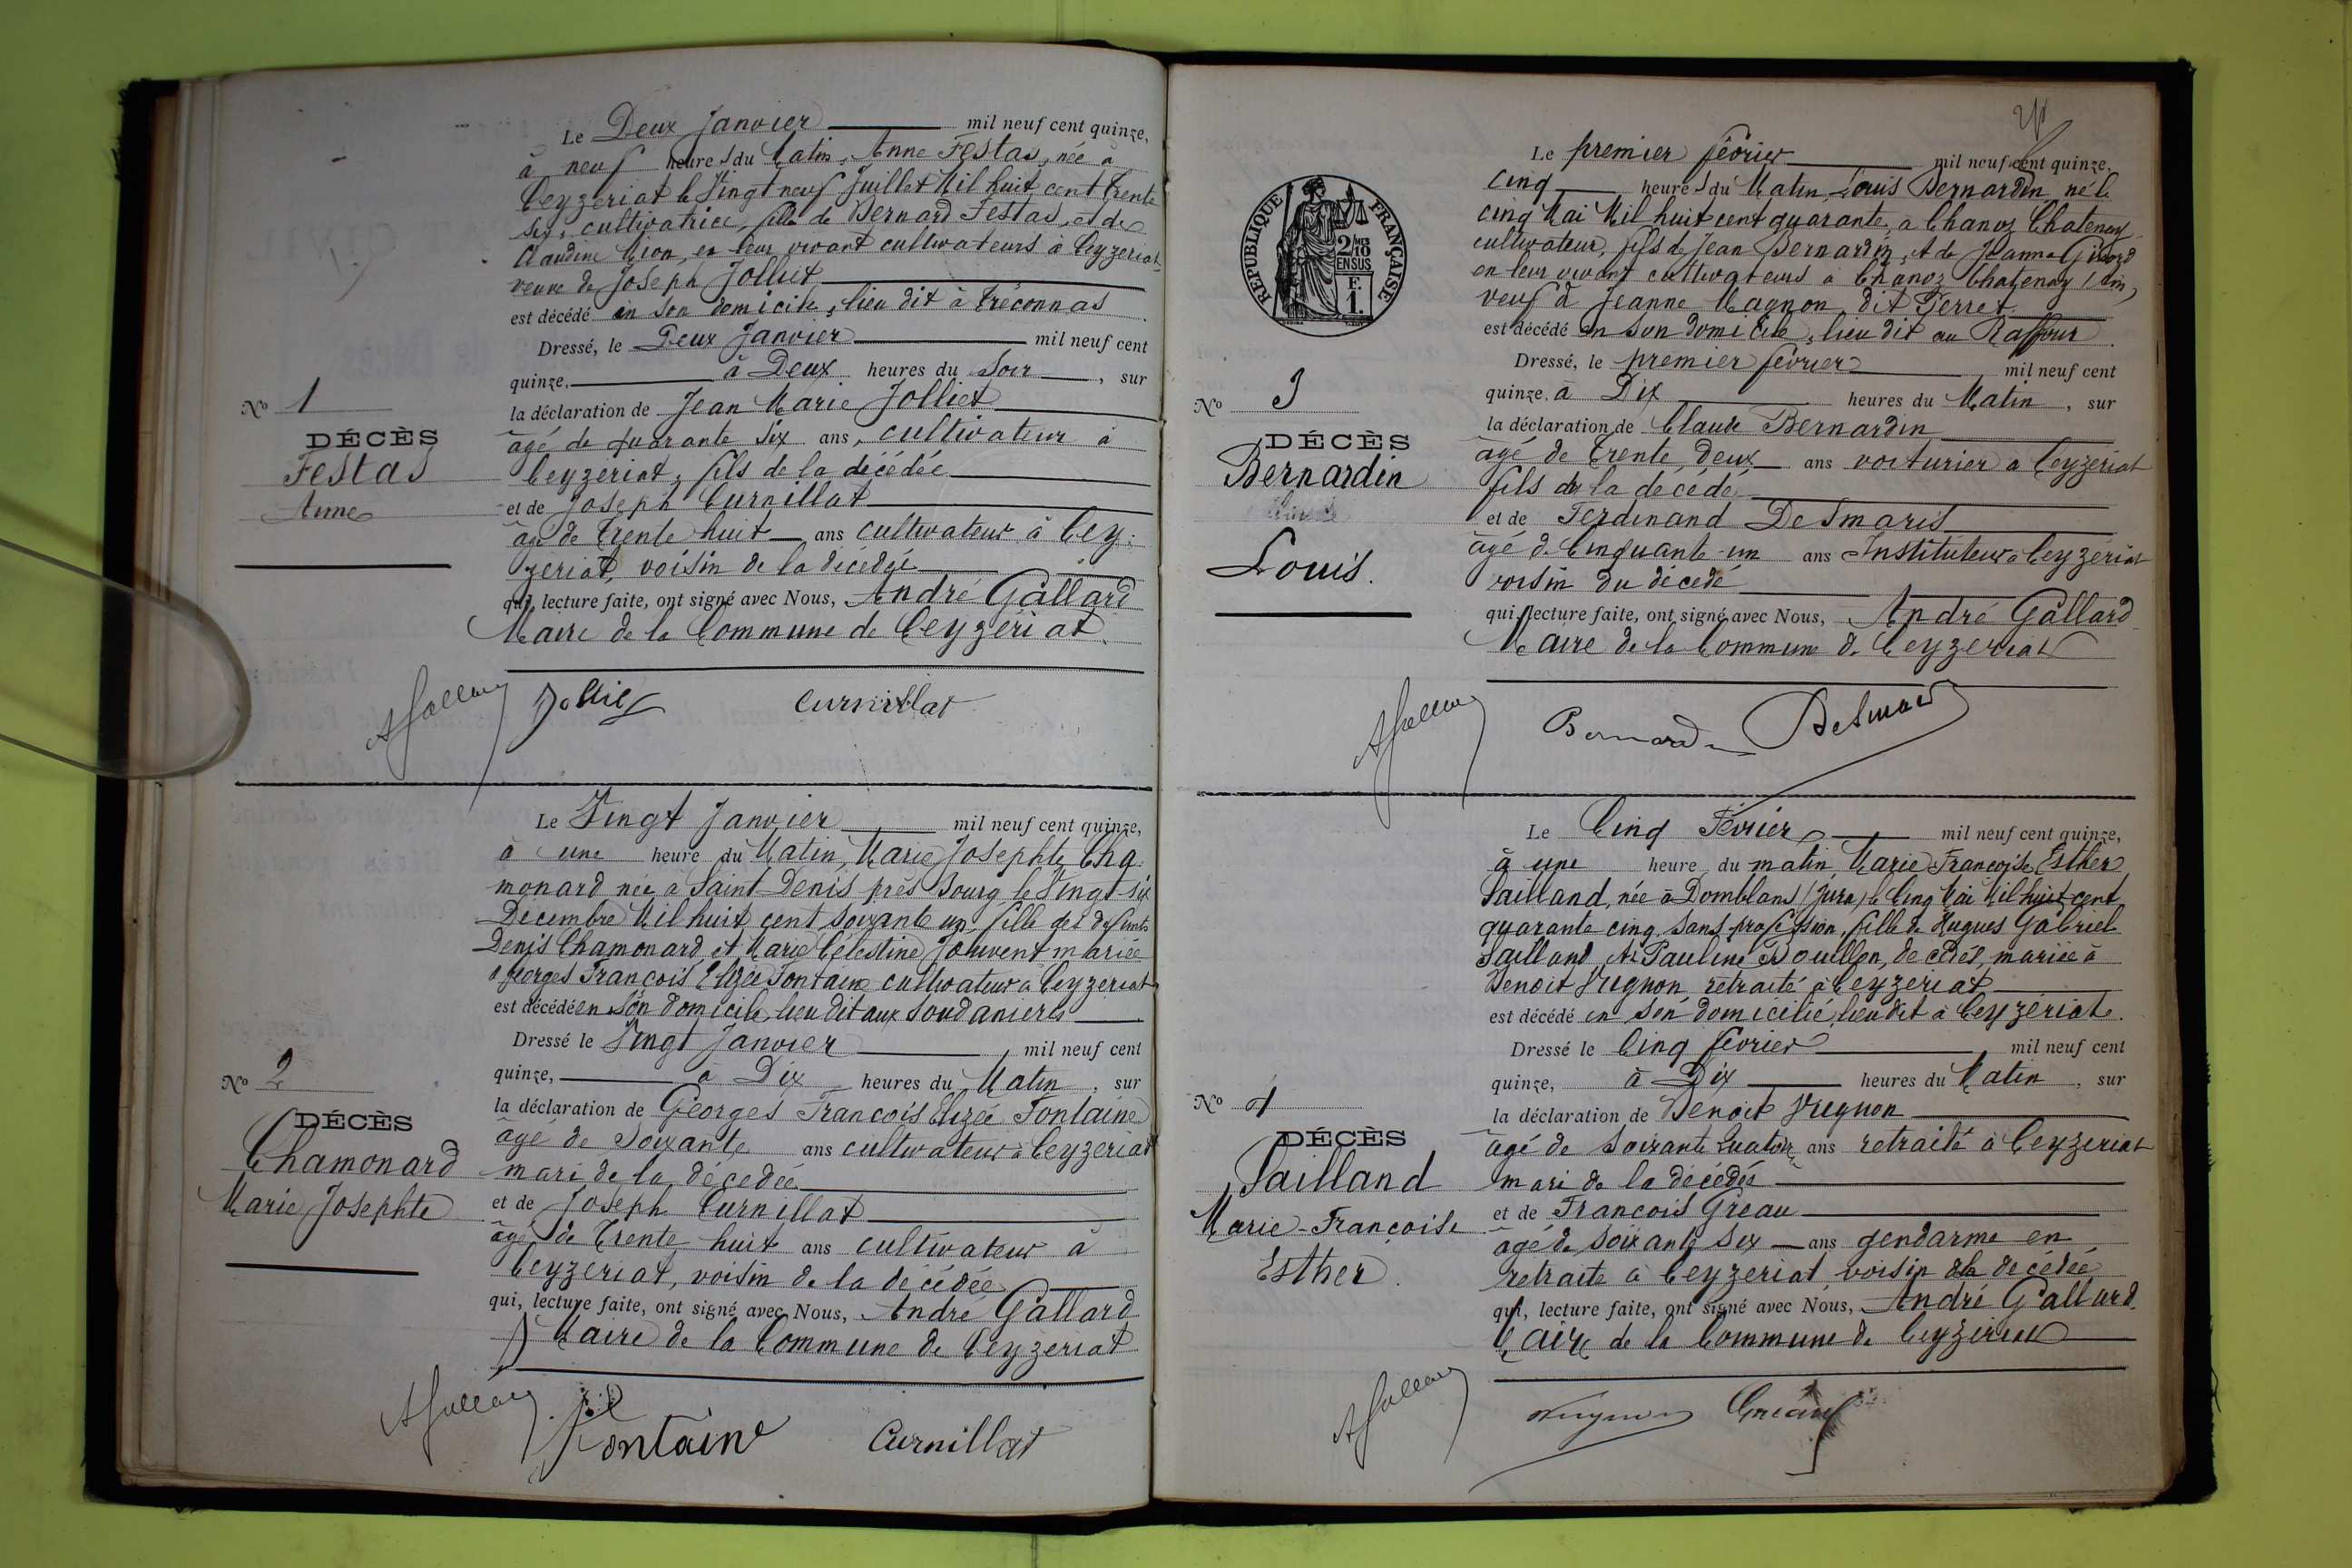 Le Deux Janvier mil neuf cent quinze,
à neuf heures du Matin, Anne Festas, née à
Ceyzeriat le Vingt neuf Juillet Mil huit cent trente
six, cultivatrice, fille de Bernard Festas, et de
Claudine Cion, en leur vivant cultivateurs à Ceyzeriat
veuve de Joseph Jolliet
est décédé en son domicile, lieu dit à Tréconnas
Dressé, le Deux Janvier mil neuf cent
quinze, à Deux heures du Soir, sur
la déclaration de Jean Marie Jolliet
âgé de quarante six ans, cultivateur à
Ceyzeriat, fils de la décédée
et de Joseph Curnillat
âgé de trente huit ans cultivateur à Cey:
zeriat, voisin de la décédée
qui, lecture faite, ont signé avec Nous, André Gallard
Maire de la Commune de Ceyzériat
No 1
DÉCÈS
Festas
Anne
AGallard Jolliet Curnillat
Le Vingt Janvier mil neuf cent quinze,
à une heure du Matin, Marie Josephte Cha
monard née à Saint-Denis près Bourg le Vingt-six
Decembre Mil huit cent soixante un, fille des defunts
Denis Chamonard, et Marie Célestine Jouvent mariée
à Georges François Elizée Fontaine cultivateur à Ceyzeriat
est décédé en son domicile, lieu dit aux Soudanieres
Dressé le Vingt Janvier, mil neuf cent
quinze, à Dix heures du Matin, sur
la déclaration de Georges François Elizée Fontaine
âgé de Soixante ans cultivateur à Ceyzeriat
mari de la décedée
et de Joseph Curnillat
âgé de trente huit ans cultivateur à
Ceyzeriat, voisin de la décédée
qui, lecture faite, ont signé avec Nous, André Gallard
Maire de la Commune de Ceyzériat
No 2
DÉCÈS
Chamonard
Marie Josephte
AGallard Fontaine Curnillat
RÉPUBLIQUE FRANÇAISE
2/10
MES
EN SUS
E.
1.
Le premier février mil neuf cent quinze,
cinq heures du Matin, Louis Bernardin né le
cinq Mai Mil huit cent quarante, à Chanoz Chatenay
cultivateur, fils de Jean Bernardin, et de Jeanne Girard
en leur vivant cultivateurs à Chanoz Chatenay (Ain)
veuf d Jeanne Magnon dit Perret
est décédé en son domicile, lieu dit au Raffour.
Dressé, le premier février, mil neuf cent
quinze, à Dix heures du Matin, sur
la déclaration de Claude Bernardin
âgé de trente deux ans voiturier à Ceyzeriat
fils de la decédé
et de Ferdinand Desmaris
âgé de Cinquante-un ans Instituteur à Ceyzériat
voisin du décedé
qui, lecture faite, ont signé avec Nous, André Gallard
Maire de la Commune de Ceyzeriat
No 3
DÉCÈS
Bernardin
Louis.
AGallard Bernardin Desmaris
Le Cinq Février mil neuf cent quinze,
à une heure du matin, Marie Françoise Esther
Sailland, née à Domblans (Jura) le Cinq Mai Mil huit cent
quarante cinq sans profession, fille de Hugues Gabriel
Sailland, et Pauline Bouillon, décédés, mariée à
Benoit Vugnon retraité à Ceyzeriat
est décédé en son domicilié, lieu dit à Ceyzériat.
Dressé le Cinq février, mil neuf cent
quinze, à Dix heures du Matin, sur
la déclaration de Benoit Vugnon
âgé de soixante Quatorze ans retraité à Ceyzeriat
mari de la décédée
et de François Gréau
âgé de soixante six ans gendarme en
retraite à Ceyzeriat, voisin de la decédée
qui, lecture faite, ont signé avec Nous, André Gallard
Maire de la Commune de Ceyzeriat
No 4
DÉCÈS
Sailland
Marie-Françoise
Esther.
AGallard Vugnon Gréau